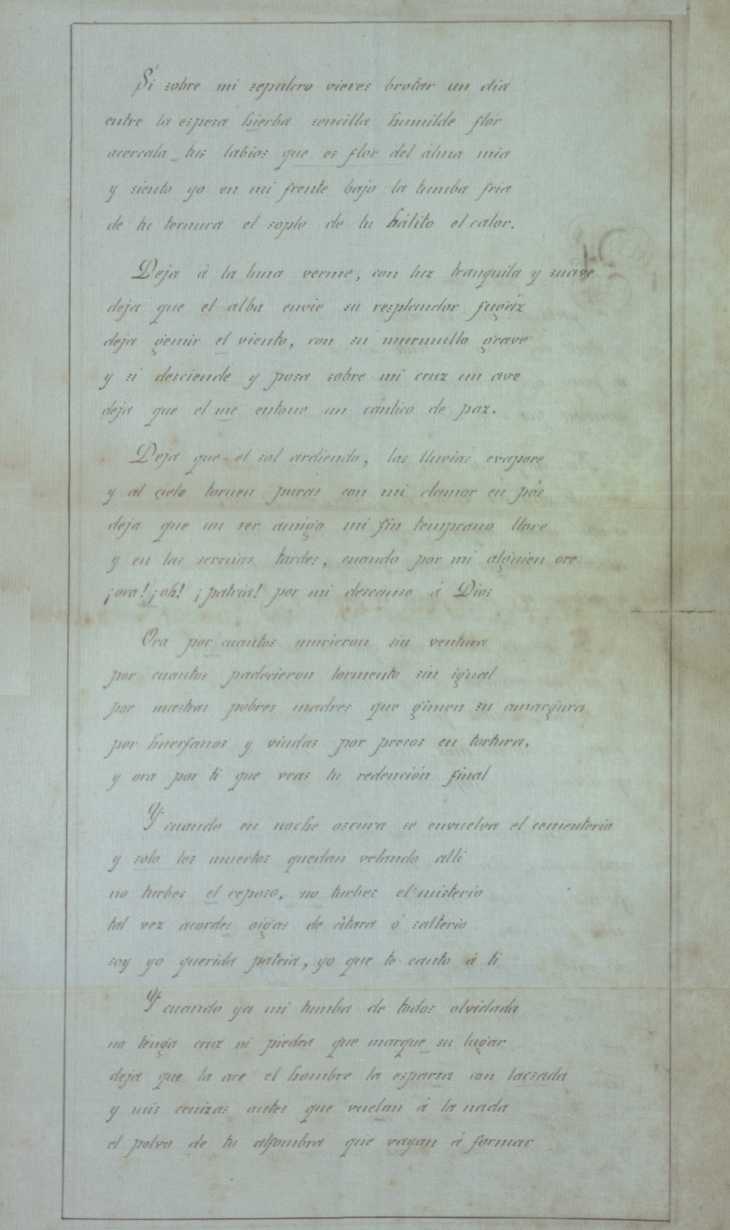 Si sobre mi sepulcro vieres brotar un dia
entre la espesa hierba sencilla humilde flor
acercala tus labios que es flor del alma mia
y sienta yo en mi frente bajo la tumba fria
de tu ternura el soplo de tu hálito el calor.
Deja á la luna verme, con luz tranquila y suave
deja que el alba envie su resplandor fugáz
deja gemir el viento, con su murmullo grave
y si desciende y posa sobre mi cruz un ave
deja que el me entone un cántico de paz.
Deja que el sol ardiendo, las lluvias evapore
y al cielo tornen puras con mi clamor en pós
deja que un ser amigo mi fin temprano llore
y en las serenas tardes, cuando por mi alguien ore
¡ora! ¡oh! ¡patria! por mi descanso á Dios
Ora por cuantos murieron sin ventura
por cuantos padecieron tormento sin igual
por nuestras pobres madres que gimen su amargura
por huerfanos y viudas por presos en tortura.
y ora por ti que veas tu redención final
Y cuando en noche oscura se envuelva el cementerio
y solo los muertos quedan velando alli
no turbes el reposo, no turbes el misterio
tal vez acordes oigas de citara ó salterio
soy yo querida patria, yo que te canto á ti
Y cuando ya mi tumba de todos olvidada
no tenga cruz ni piedra que marque su lugar
deja que la are el hombre la esparza con lacsada
y mis cenizas antes que vuelan á la nada
el polvo de tu alfombra que vayan á formar